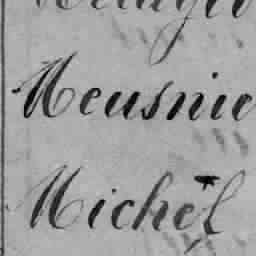 Meusnie
Michel